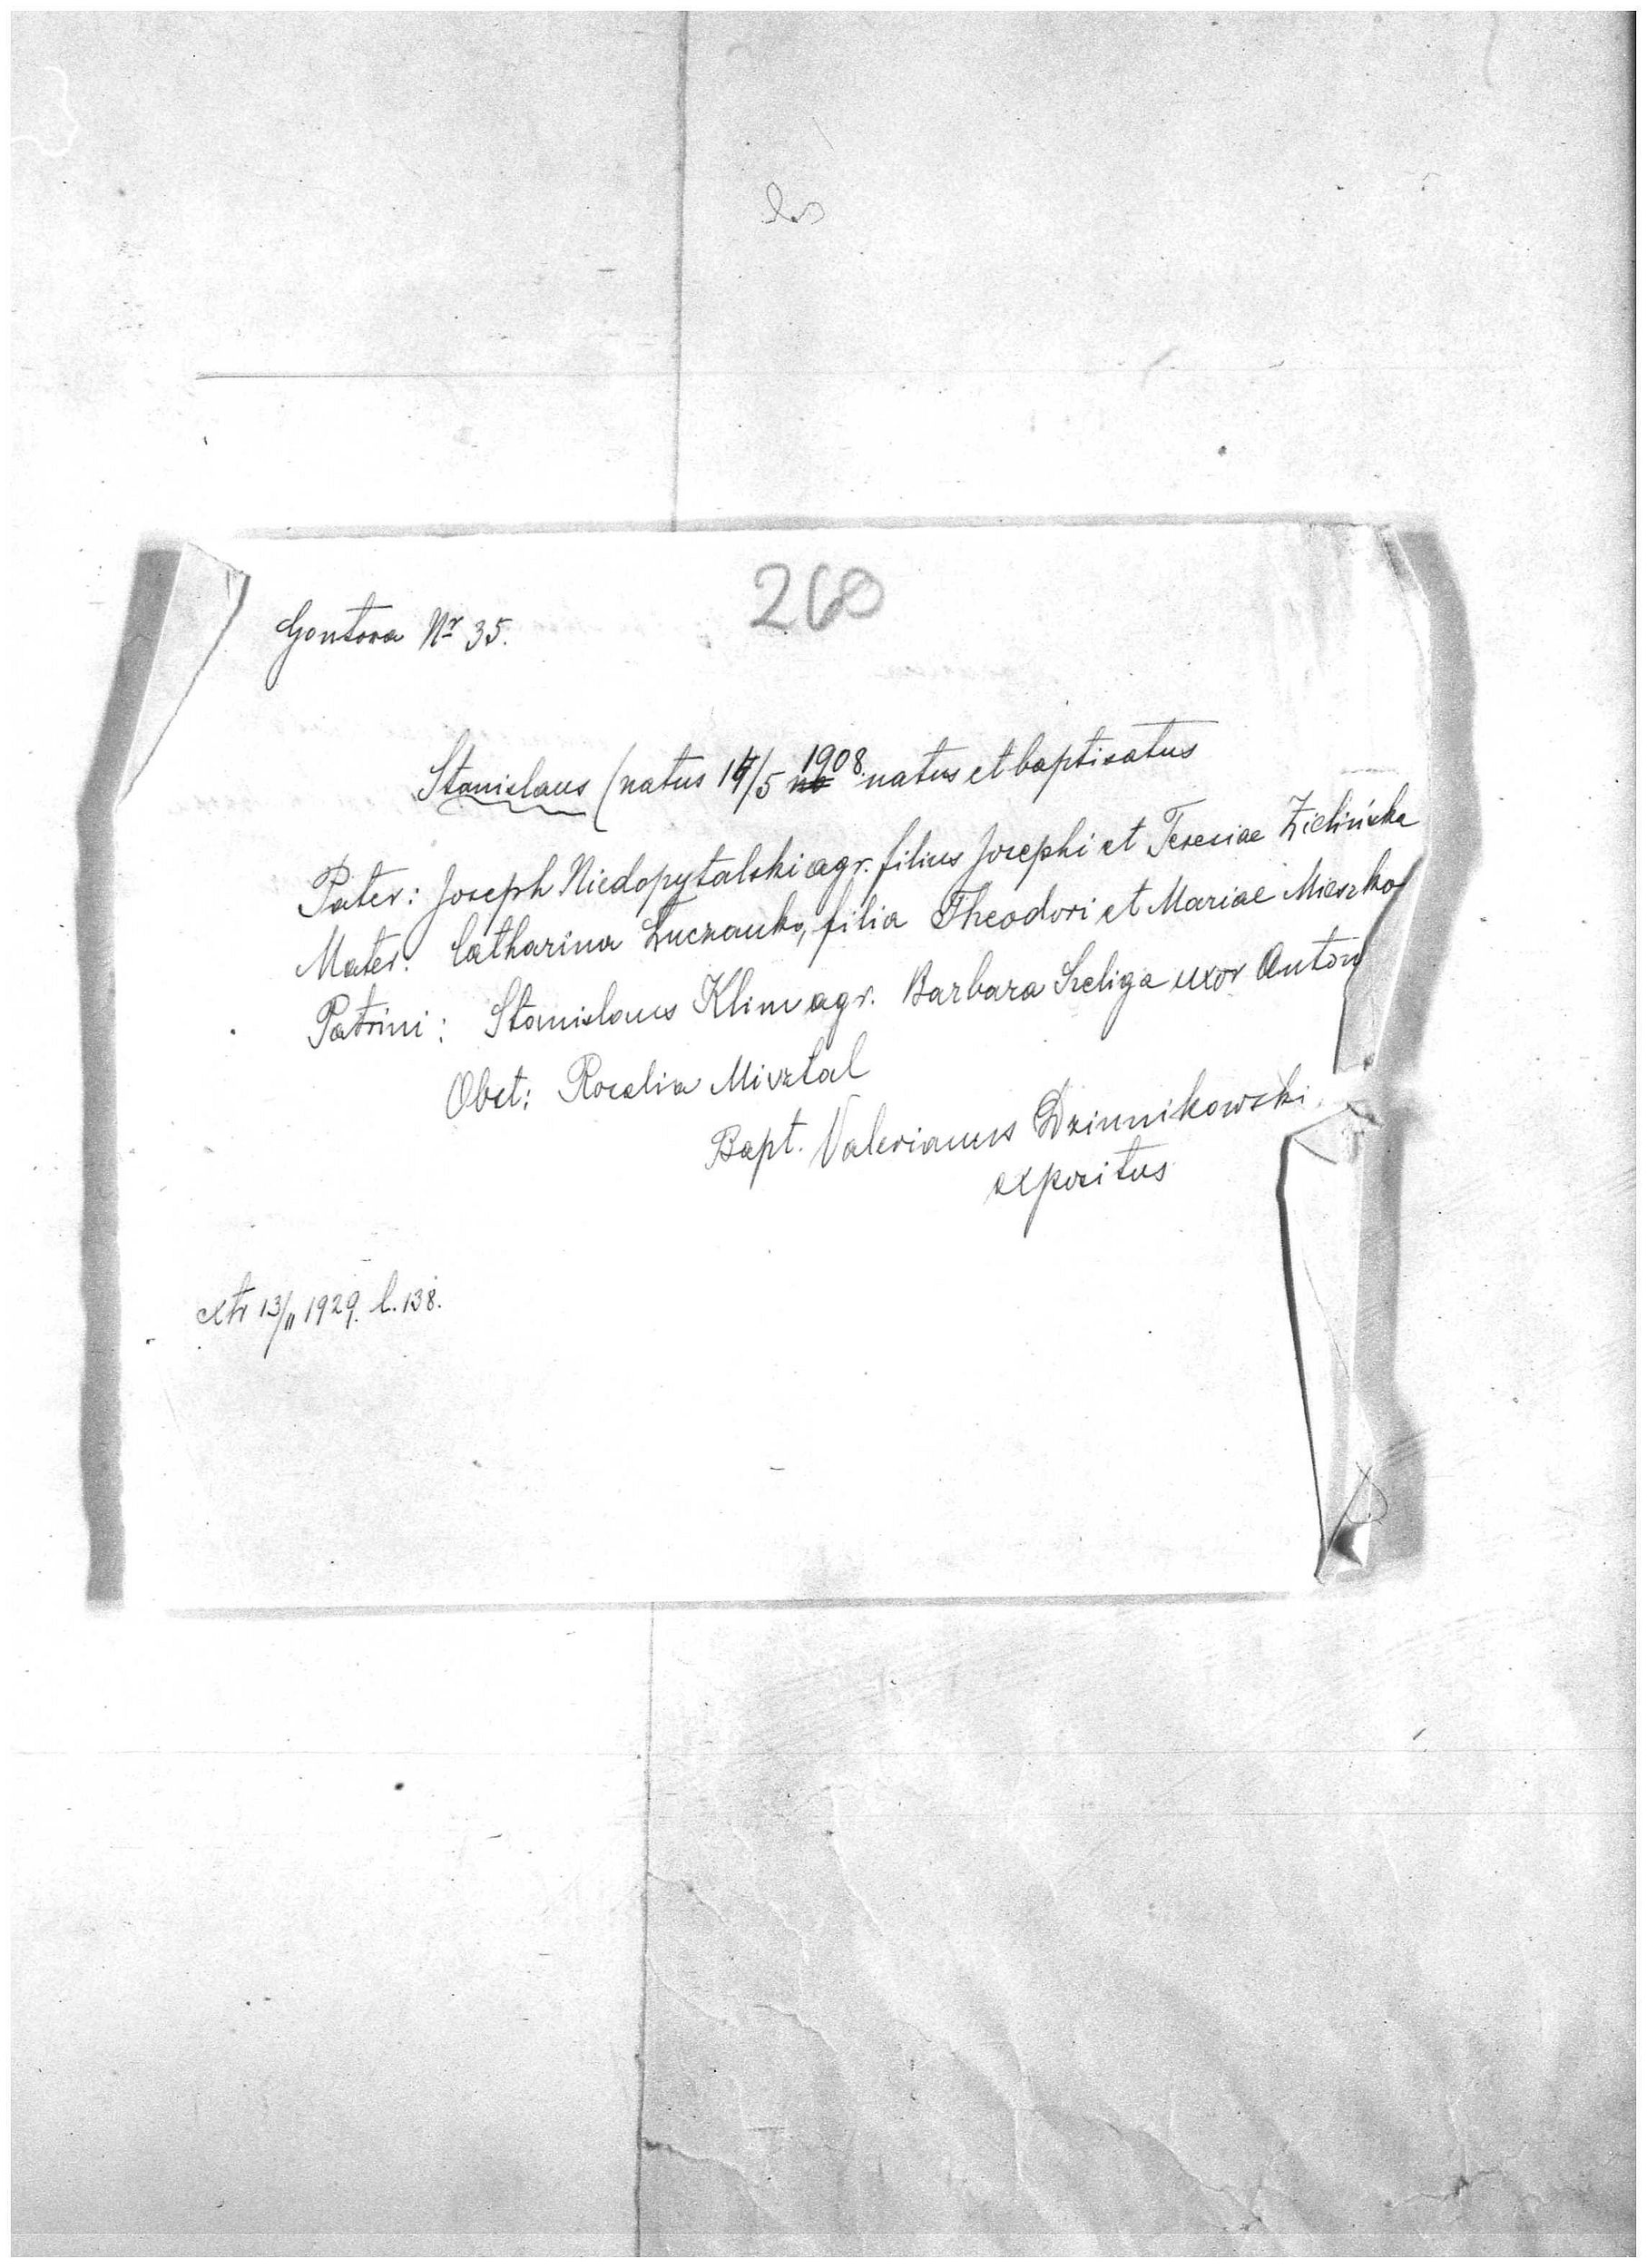 260
Gontova Nr 35.
Stanislaus (natus 14/5 1908. natus et baptisatus
Pater: Joseph Niedopytalski agr. filius Josephi et Teresiae Zielińska
Mater: Catharina Łuczanko, filia Theodori et Mariae Mieszko
Patrini: Stanislaus Klim agr. Barbara Szeliga uxor Anton
Obst: Rosalia Misztal
Bapt. Valerianus Dziunikowski
expositus
extr 13/11 1929. l. 138.